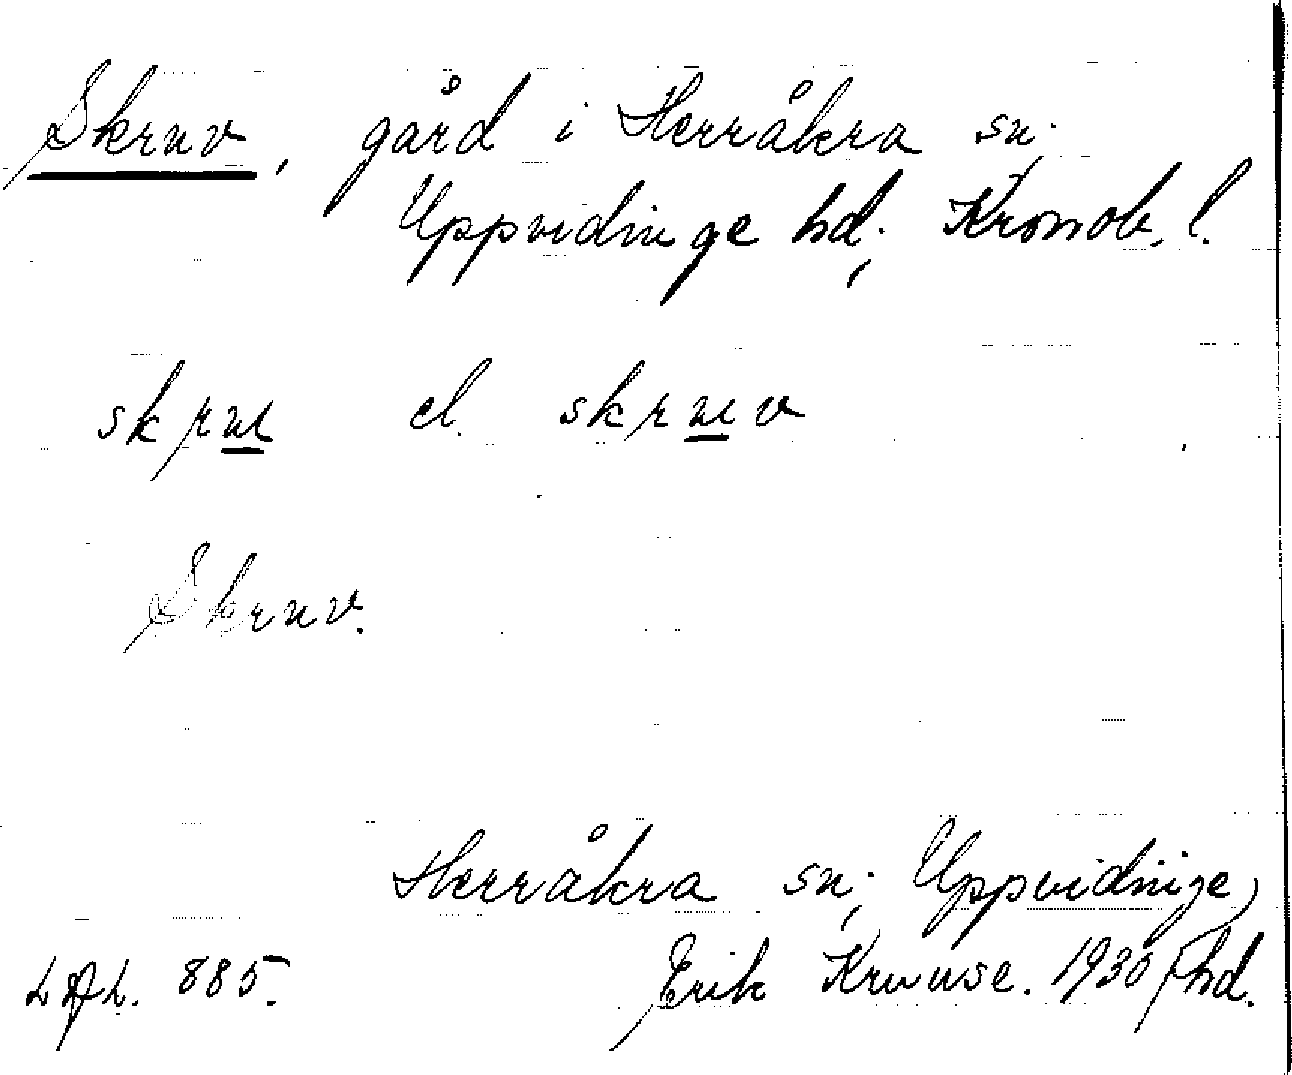 Skruv, gård i Herråkra sn;
Uppvidinge hd; Kronob. l.
skru el. skruv
Skruv.
Herråkra sn; Uppvidinge
885. Erik Kruuse. 1930 hd.